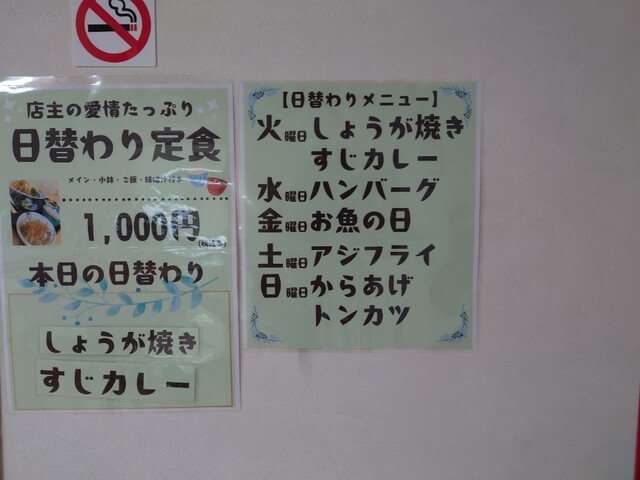 店主の愛情たっぷり
日替わり定食
メイン・小鉢・ご飯・味噌汁付き
1,000円
(税込み)
本日の日替わり
しょうが焼き
すじカレー
【日替わりメニュー】
火曜日しょうが焼き
すじカレー
水曜日ハンバーグ
金曜日お魚の日
土曜日アジフライ
日曜日からあげ
トンカツ